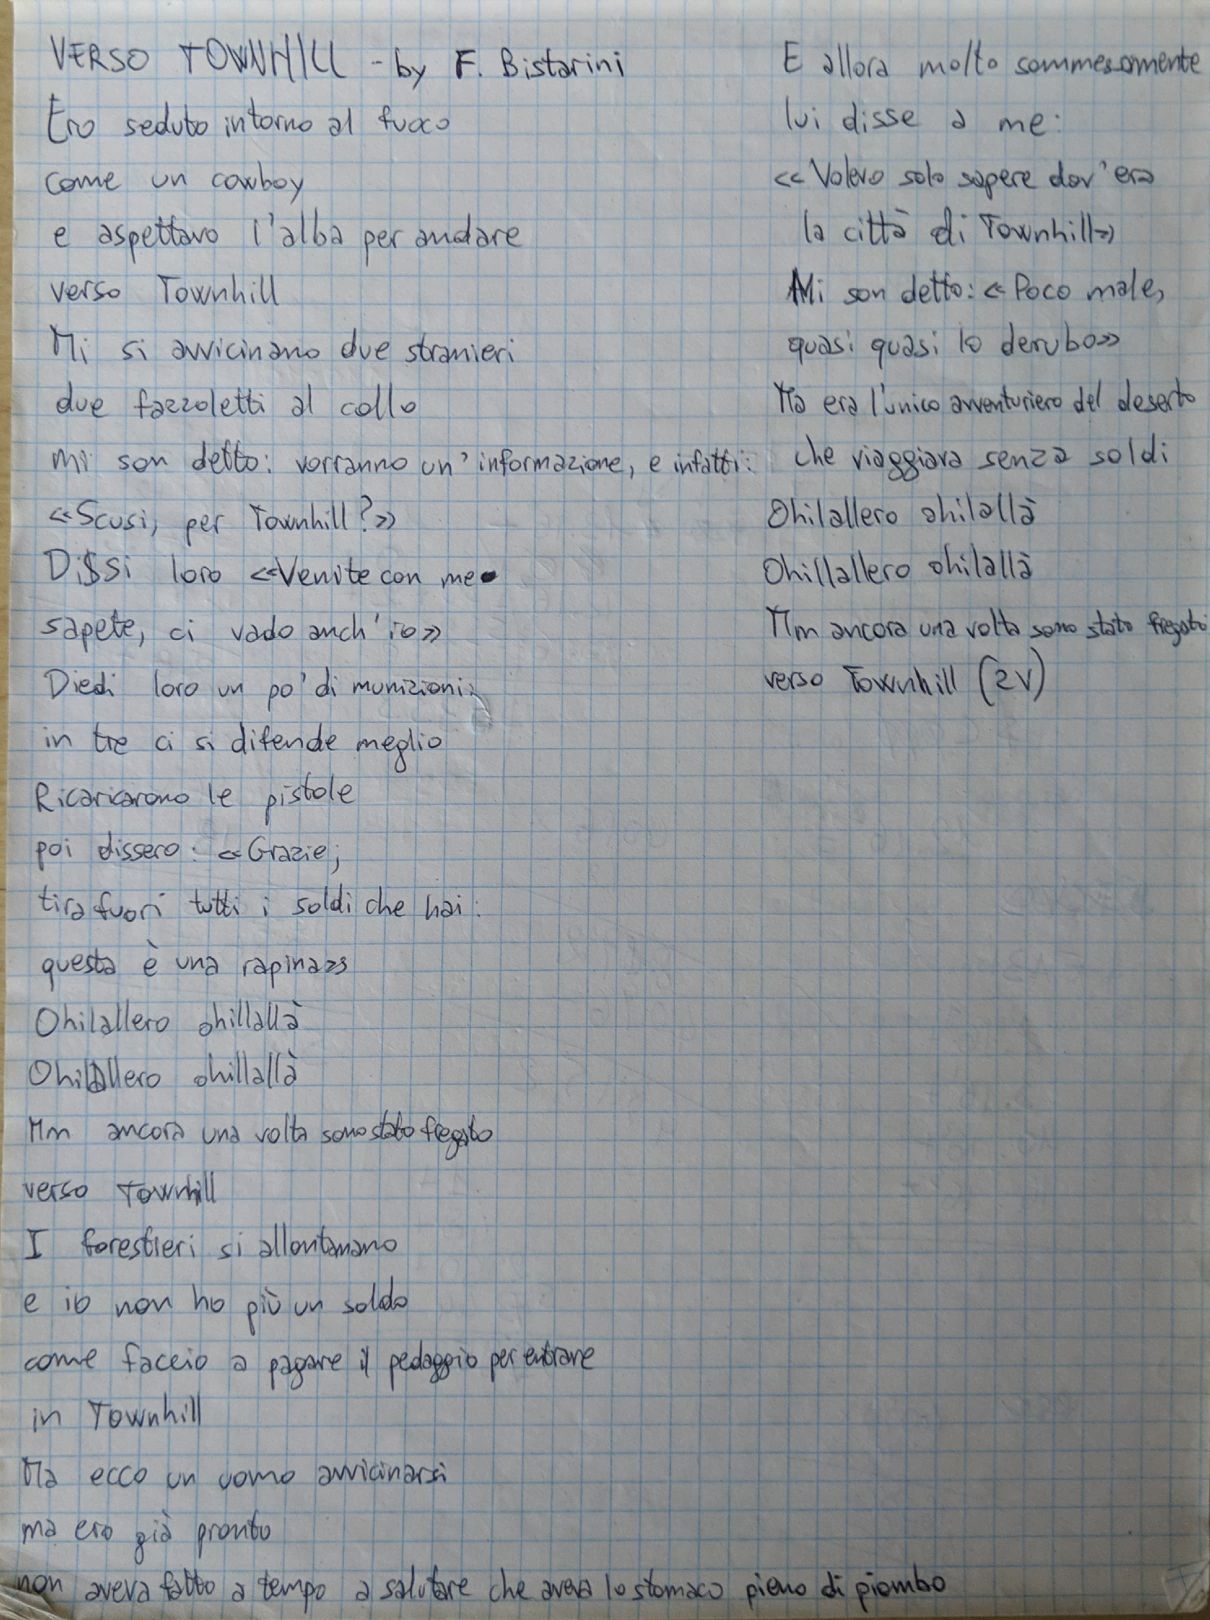 VERSO TOWNHILL - by F. Bistarini
Ero seduto intorno al fuoco
come un cowboy
e aspettavo l'alba per andare
verso Townhill
Mi si avvicinano due stranieri
due fazzoletti al collo
mi son detto: vorranno un'informazione, e infatti:
«Scusi, per Townhill?»
Dissi loro «Venite con me
sapete, ci vado anch'io»
Diedi loro un po' di munizioni:
in tre ci si difende meglio
Ricaricarono le pistole
poi dissero: «Grazie;
tira fuori tutti i soldi che hai:
questa è una rapina»
Ohilallero ohillallà
Ohilallero ohillallà
Mm ancora una volta sono stato fregato
verso Townhill
I forestieri si allontanano
e io non ho più un soldo
come faccio a pagare il pedaggio per entrare
in Townhill
Ma ecco un uomo avvicinarsi
ma ero già pronto
non aveva fatto a tempo a salutare che aveva lo stomaco pieno di piombo
E allora molto sommessamente
lui disse a me:
«Volevo solo sapere dov'era
la città di Townhill»
Mi son detto: «Poco male,
quasi quasi lo derubo»
Ma era l'unico avventuriero del deserto
che viaggiava senza soldi
Ohilallero ohilallà
Ohillallero ohilallà
Mm ancora una volta sono stato fregato
verso Townhill (2V)